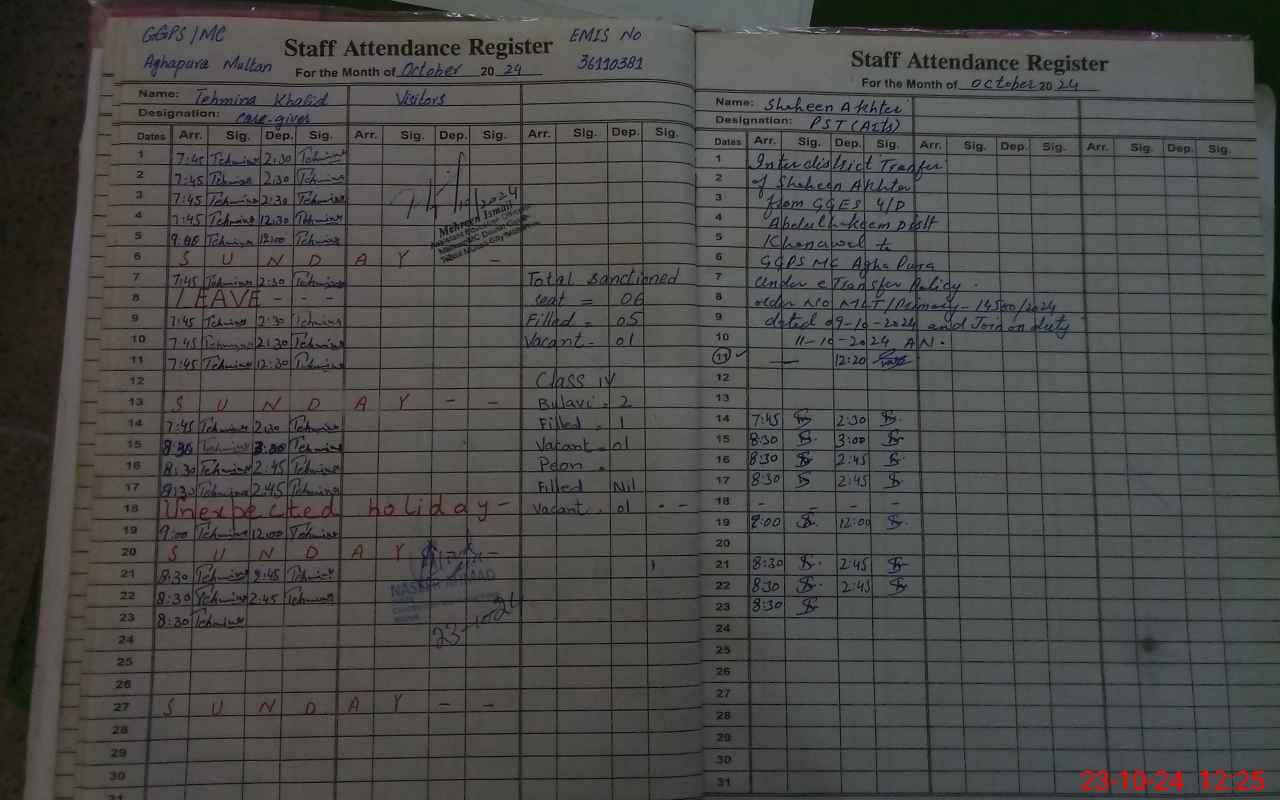 GGPS/MC
Aghapura Multan
Staff Attendance Register
EMIS No
36110381
For the Month of October 20 24
Name: Tehmina Khalid Visitors
Designation: care-giver
Dates Arr. Sig. Dep. Sig. Arr. Sig. Dep. Sig. Arr. Sig. Dep. Sig.
1 7:45 Tehmina 2:30 Tehmina
2 7:45 Tehmina 2:30 Tehmina
3 7:45 Tehmina 2:30 Tehmina
4 7:45 Tehmina 12:30 Tehmina
5 9:00 Tehmina 12:00 Tehmina
10/2024
Mehreen Ismail
6 S U N D A Y - -
7 7:45 Tehmina 2:30 Tehmina Total Sanctioned
8 LEAVE - - - seat = 06
9 7:45 Tehmina 2:30 Tehmina Filled = 05
10 7:45 Tehmina 2:30 Tehmina Vacant - 01
11 7:45 Tehmina 12:30 Tehmina
12 Class IV
13 S U N D A Y - - Bulavi = 2
14 7:45 Tehmina 2:30 Tehmina Filled = 1
15 8:30 Tehmina 3:00 Tehmina Vacant = 01
16 8:30 Tehmina 2:45 Tehmina Peon =
17 8:30 Tehmina 2:45 Tehmina Filled Nil
18 Unexpected holiday - Vacant = 01 - -
19 9:00 Tehmina 12:00 Tehmina
20 S U N D A Y - -
21 8:30 Tehmina 2:45 Tehmina
NASEER AHMAD
22 8:30 Tehmina 2:45 Tehmina
23 8:30 Tehmina
23-10-24
24
25
26
27 S U N D A Y - -
28
29
30
31
Staff Attendance Register
For the Month of October 20 24
Name: Shaheen Akhter
Designation: PST (Arts)
Dates Arr. Sig. Dep. Sig. Arr. Sig. Dep. Sig. Arr. Sig. Dep. Sig.
1 Interdistrict Tranfer
2 of Shaheen Akhter
3 from GGES 4/D
4 Abdulhakeem Distt
5 Khanawal to
6 GGPS MC Agha Pura
7 under e Transfer Policy.
8 order No MLT/Primary-14500/2024
9 dated 09-10-2024 and Join on duty
10 11-10-2024 A.N.
11 — 12:20
12
13
14 7:45 2:30
15 8:30 3:00
16 8:30 2:45
17 8:30 2:45
18 - - - -
19 9:00 12:00
20
21 8:30 2:45
22 8:30 2:45
23 8:30
24
25
26
27
28
29
30
31
23-10-24 12:25